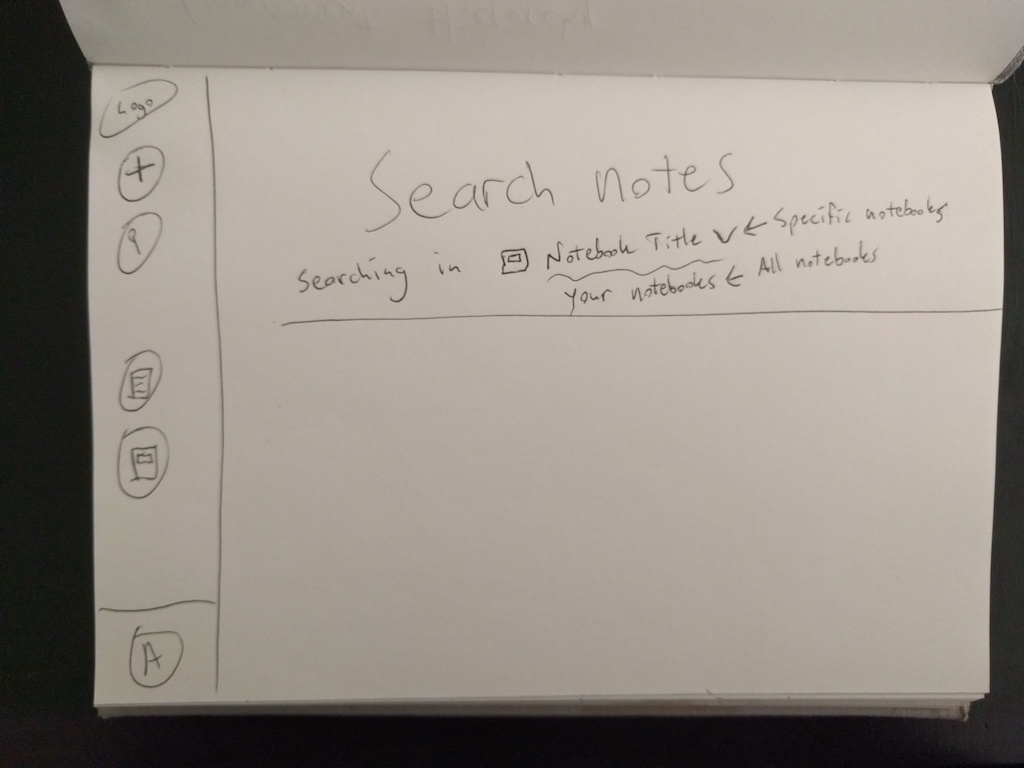 Logo
Search notes
Searching in Notebook Title ← Specific notebooks
Your notebooks ← All notebooks
A